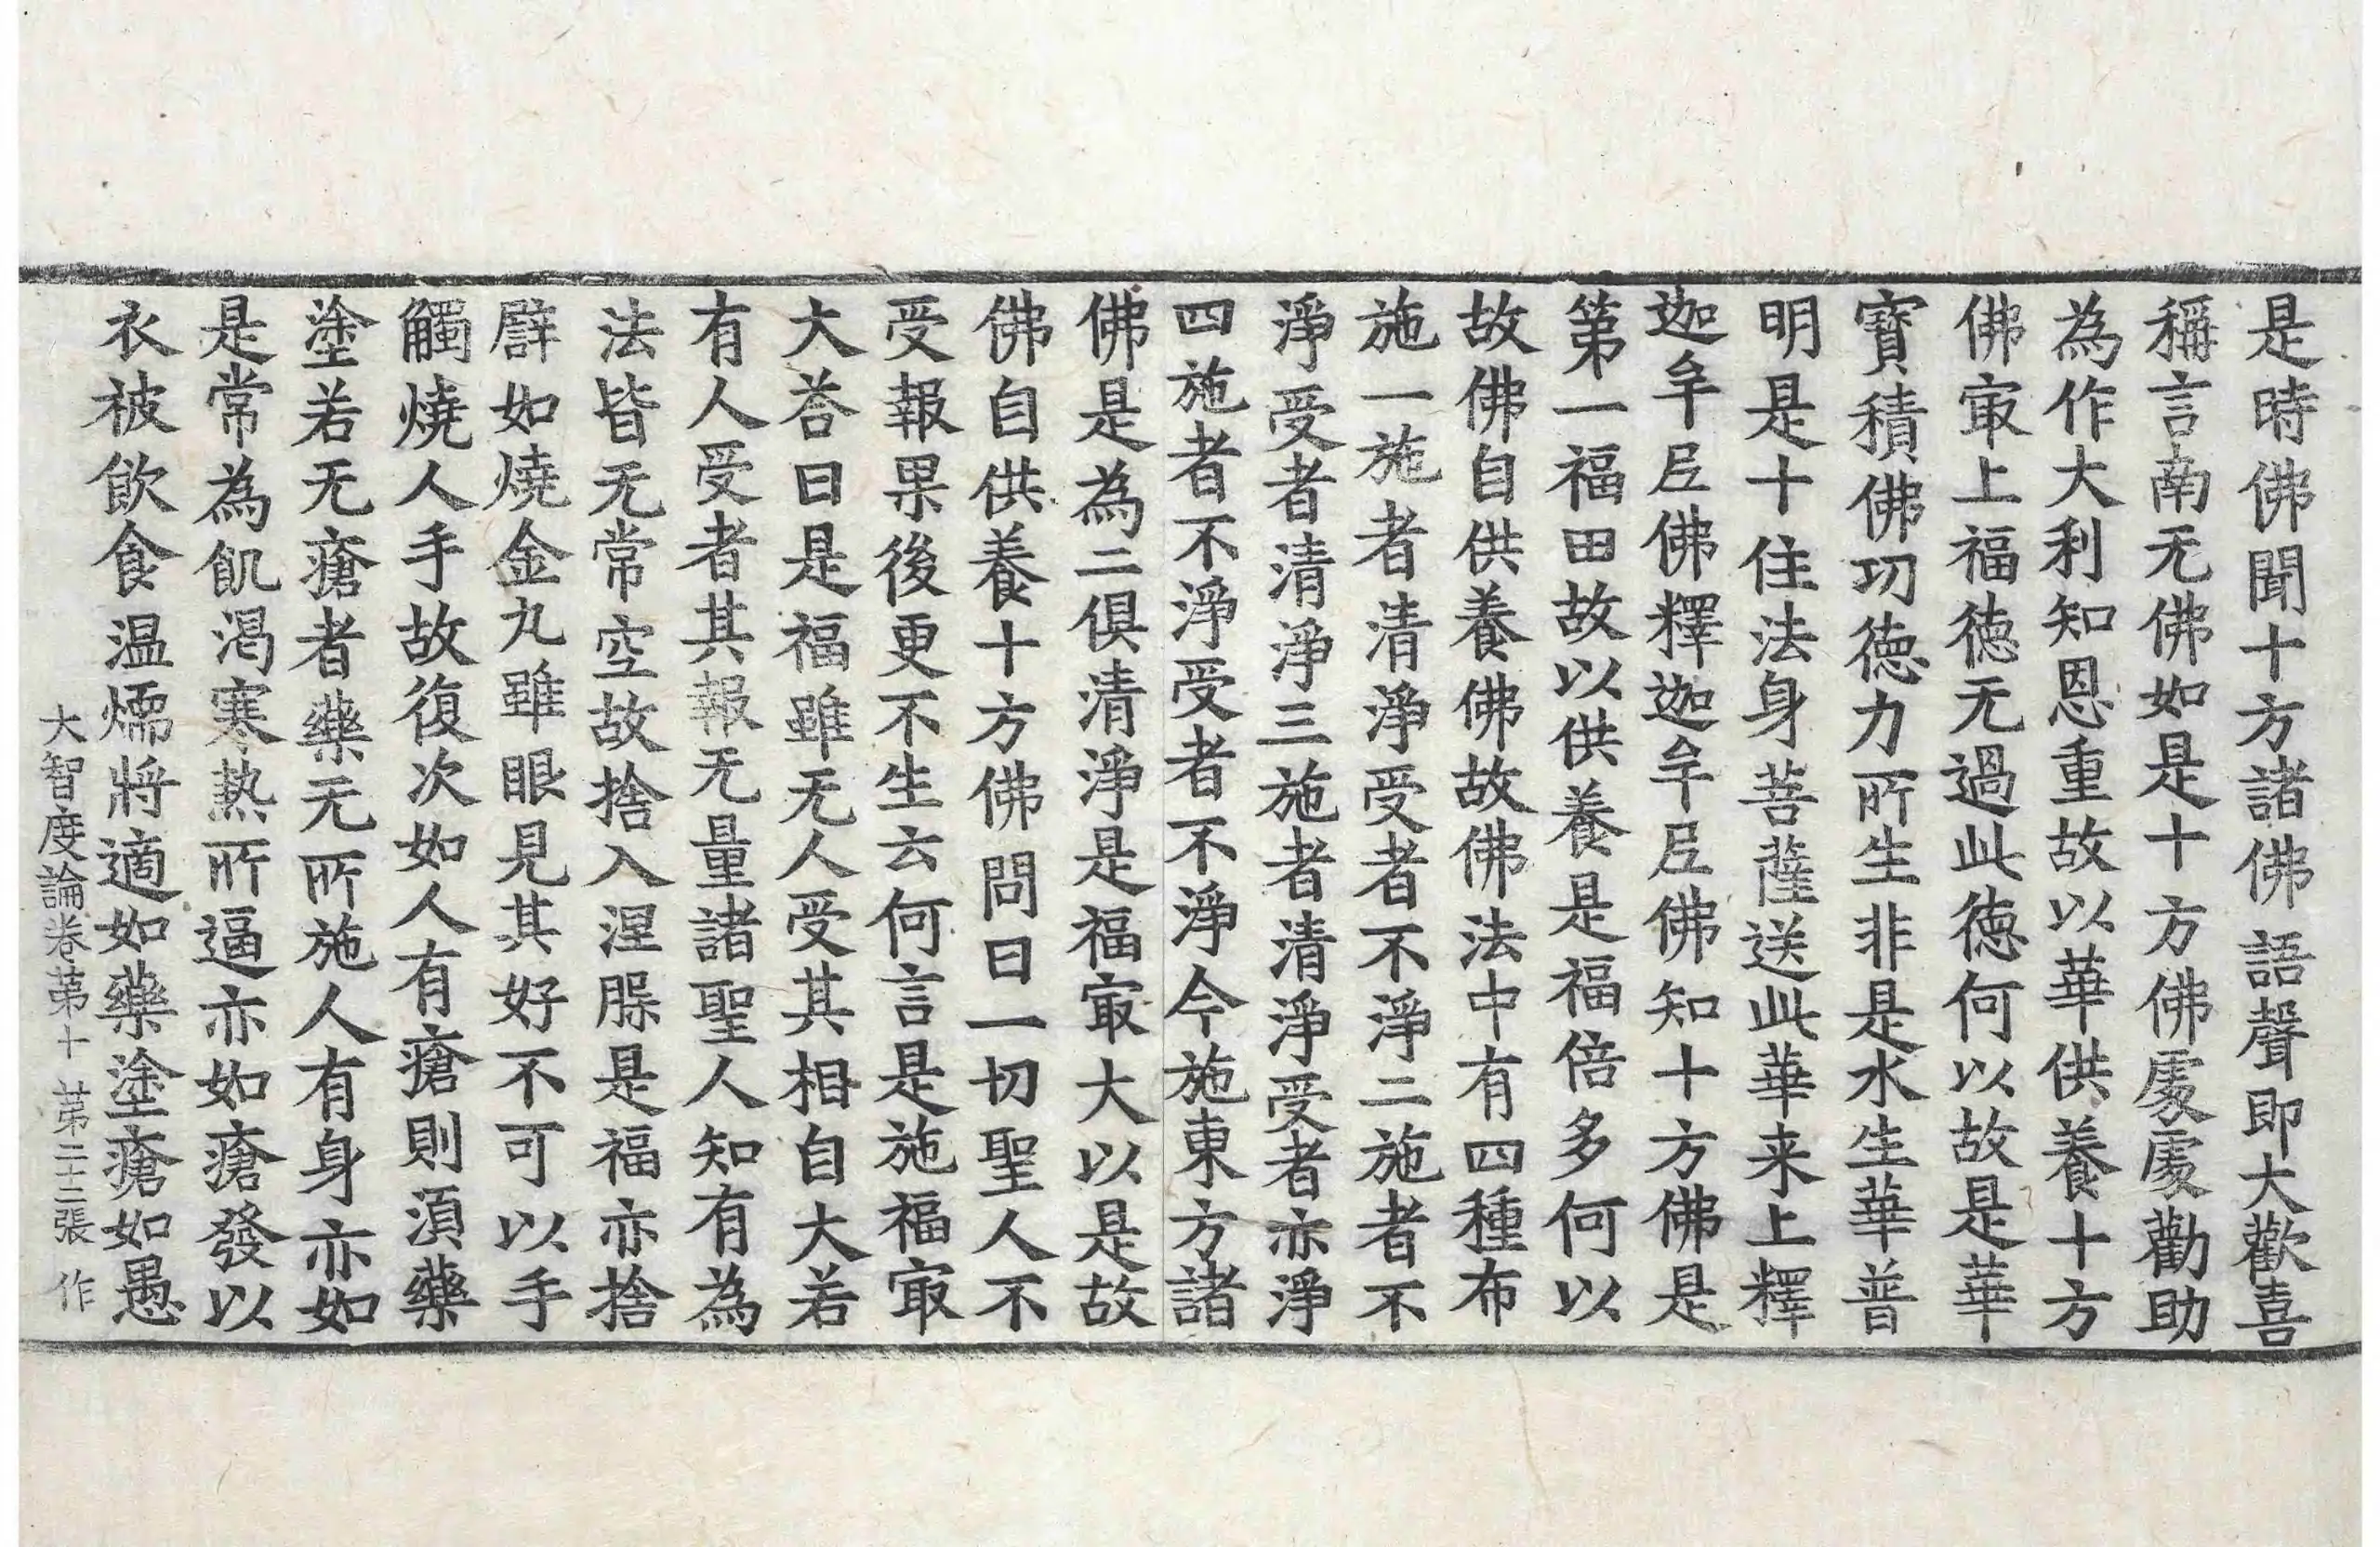 是時佛聞十方諸佛語聲即大歡喜
稱言南无佛如是十方佛處處勸助
為作大利知恩重故以華供養十方
佛㝡上福德无過此德何以故是華
寶積佛功德力所生非是水生華普
明是十住法身菩薩送此華来上釋
迦牟尼佛釋迦牟尼佛知十方佛是
第一福田故以供養是福倍多何以
故佛自供養佛故佛法中有四種布
施一施者清淨受者不淨二施者不
淨受者清淨三施者清淨受者亦淨
四施者不淨受者不淨今施東方諸
佛是為二俱清淨是福㝡大以是故
佛自供養十方佛問曰一切聖人不
受報果後更不生云何言是施福㝡
大荅曰是福雖无人受其相自大若
有人受者其報无量諸聖人知有為
法皆无常空故捨入涅槃是福亦捨
辟如燒金丸雖眼見其好不可以手
觸燒人手故復次如人有瘡則湏藥
塗若无瘡者藥无所施人有身亦如
是常為飢渴寒熱所逼亦如瘡發以
衣被飲食温燸將適如藥塗瘡如愚
大智度論卷苐十 苐二十二張 作